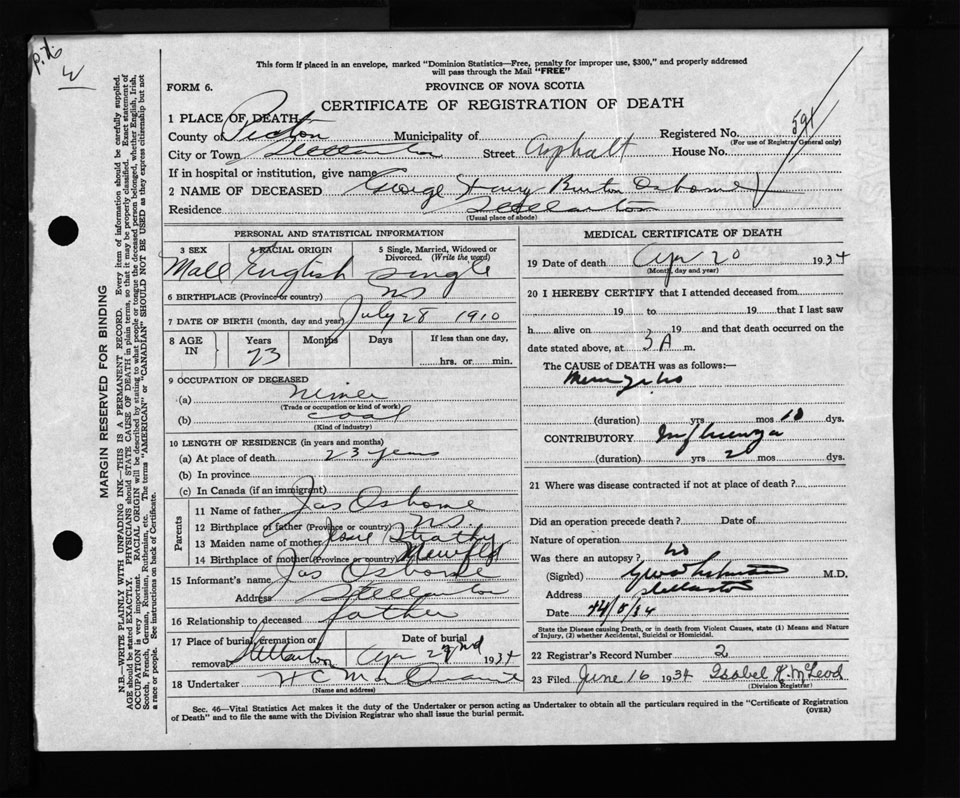 This form if placed in an envelope, marked "Dominion Statistics—Free, penalty for improper use, $300," and properly addressed
will pass through the Mail "FREE"
FORM 6.
PROVINCE OF NOVA SCOTIA
CERTIFICATE OF REGISTRATION OF DEATH
1 PLACE OF DEATH
County of Pictou Municipality of Registered No. 591
(For use of Registrar General only)
City or Town Stellarton Street Asphalt House No.
If in hospital or institution, give name
2 NAME OF DECEASED George Harry Burton Osborne
Residence Stellarton
(Usual place of abode)
MARGIN RESERVED FOR BINDING
N.B.—WRITE PLAINLY WITH UNFADING INK—THIS IS A PERMANENT RECORD. Every item of information should be carefully supplied.
AGE should be stated EXACTLY. PHYSICIANS should STATE CAUSE OF DEATH in plain terms, so that it may be properly classified. Exact statement of
OCCUPATION is very important. RACIAL ORIGIN will be described by stating to what people or tongue the deceased person belonged, whether English, Irish,
Scotch, French, German, Russian, Ruthenian, etc. The terms "AMERICAN" or "CANADIAN" SHOULD NOT BE USED as they express citizenship but not
a race or people. See instructions on back of Certificate.
PERSONAL AND STATISTICAL INFORMATION
3 SEX 4 RACIAL ORIGIN 5 Single, Married, Widowed or
Divorced. (Write the word)
Male English Single
6 BIRTHPLACE (Province or country) NS
7 DATE OF BIRTH (month, day and year) July 28 1910
8 AGE IN Years Months Days If less than one day,
23 hrs. or min.
9 OCCUPATION OF DECEASED
(a) Miner
(Trade or occupation or kind of work)
(b) coal
(Kind of industry)
10 LENGTH OF RESIDENCE (in years and months)
(a) At place of death 23 years
(b) In province
(c) In Canada (if an immigrant)
Parents
11 Name of father Jas Osborne
12 Birthplace of father (Province or country) NS.
13 Maiden name of mother
14 Birthplace of mother (Province or country) Newfld
15 Informant's name Jas Osborne
Address Stellarton
16 Relationship to deceased father
17 Place of burial, cremation or
removal Stellarton
Date of burial
Apr 22nd 1934
18 Undertaker
(Name and address)
MEDICAL CERTIFICATE OF DEATH
19 Date of death Apr 20 1934
(Month, day and year)
20 I HEREBY CERTIFY that I attended deceased from
19 to 19 that I last saw
h alive on 19 and that death occurred on
date stated above, at 3 A m.
The CAUSE OF DEATH was as follows:—
(duration) yrs mos 10 dys.
CONTRIBUTORY Influenza
(duration) yrs 2 mos dys.
21 Where was disease contracted if not at place of death?
Did an operation precede death? Date of
Nature of operation
Was there an autopsy? No
(Signed) M.D.
Address Stellarton
Date
State the Disease causing Death, or in death from Violent Causes, state (1) Means and Nature
of Injury, (2) whether Accidental, Suicidal or Homicidal.
22 Registrar's Record Number 2
23 Filed June 16 1934 Isabel K. McLeod
(Division Registrar)
Sec. 46—Vital Statistics Act makes it the duty of the Undertaker or person acting as Undertaker to obtain all the particulars required in the "Certificate of Registration
of Death" and to file the same with the Division Registrar who shall issue the burial permit.
(OVER)